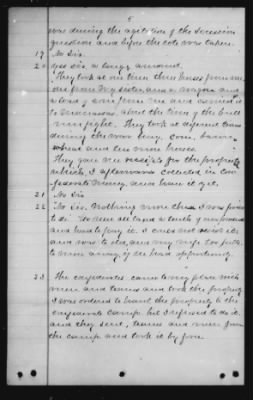 5
was during the agitation of the secession
question and before the vote was taken.
17 No Sir.
20 Yes sir, a large amount.
They took at one time three horses from me,
one from my sister, and a wagon and
a load of corn from me and carried it
to Manassas, about the time of the bull
run fight. They took at different times
during the war hay, corn, bacon
wheat and two more horses.
They gave me receipts for the property
which, I afterwards collected in Con-
federate money, and have it yet.
21 No Sir
22 No sir, nothing more than I was forced
to do. We were all taxed a tenth of our produce
and had to pay it. I could not avoid it;
and was to old, and my wife too feeble
to move away if we had opportunity.
23 The confederates came to my place with
men and teams and took the property
I was ordered to haul the property to the
camp but I refused to do it.
and they sent teams and men from
the camp and took it by force.